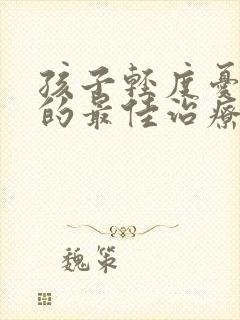 孩子輕度憂
的最佳治療
魏策